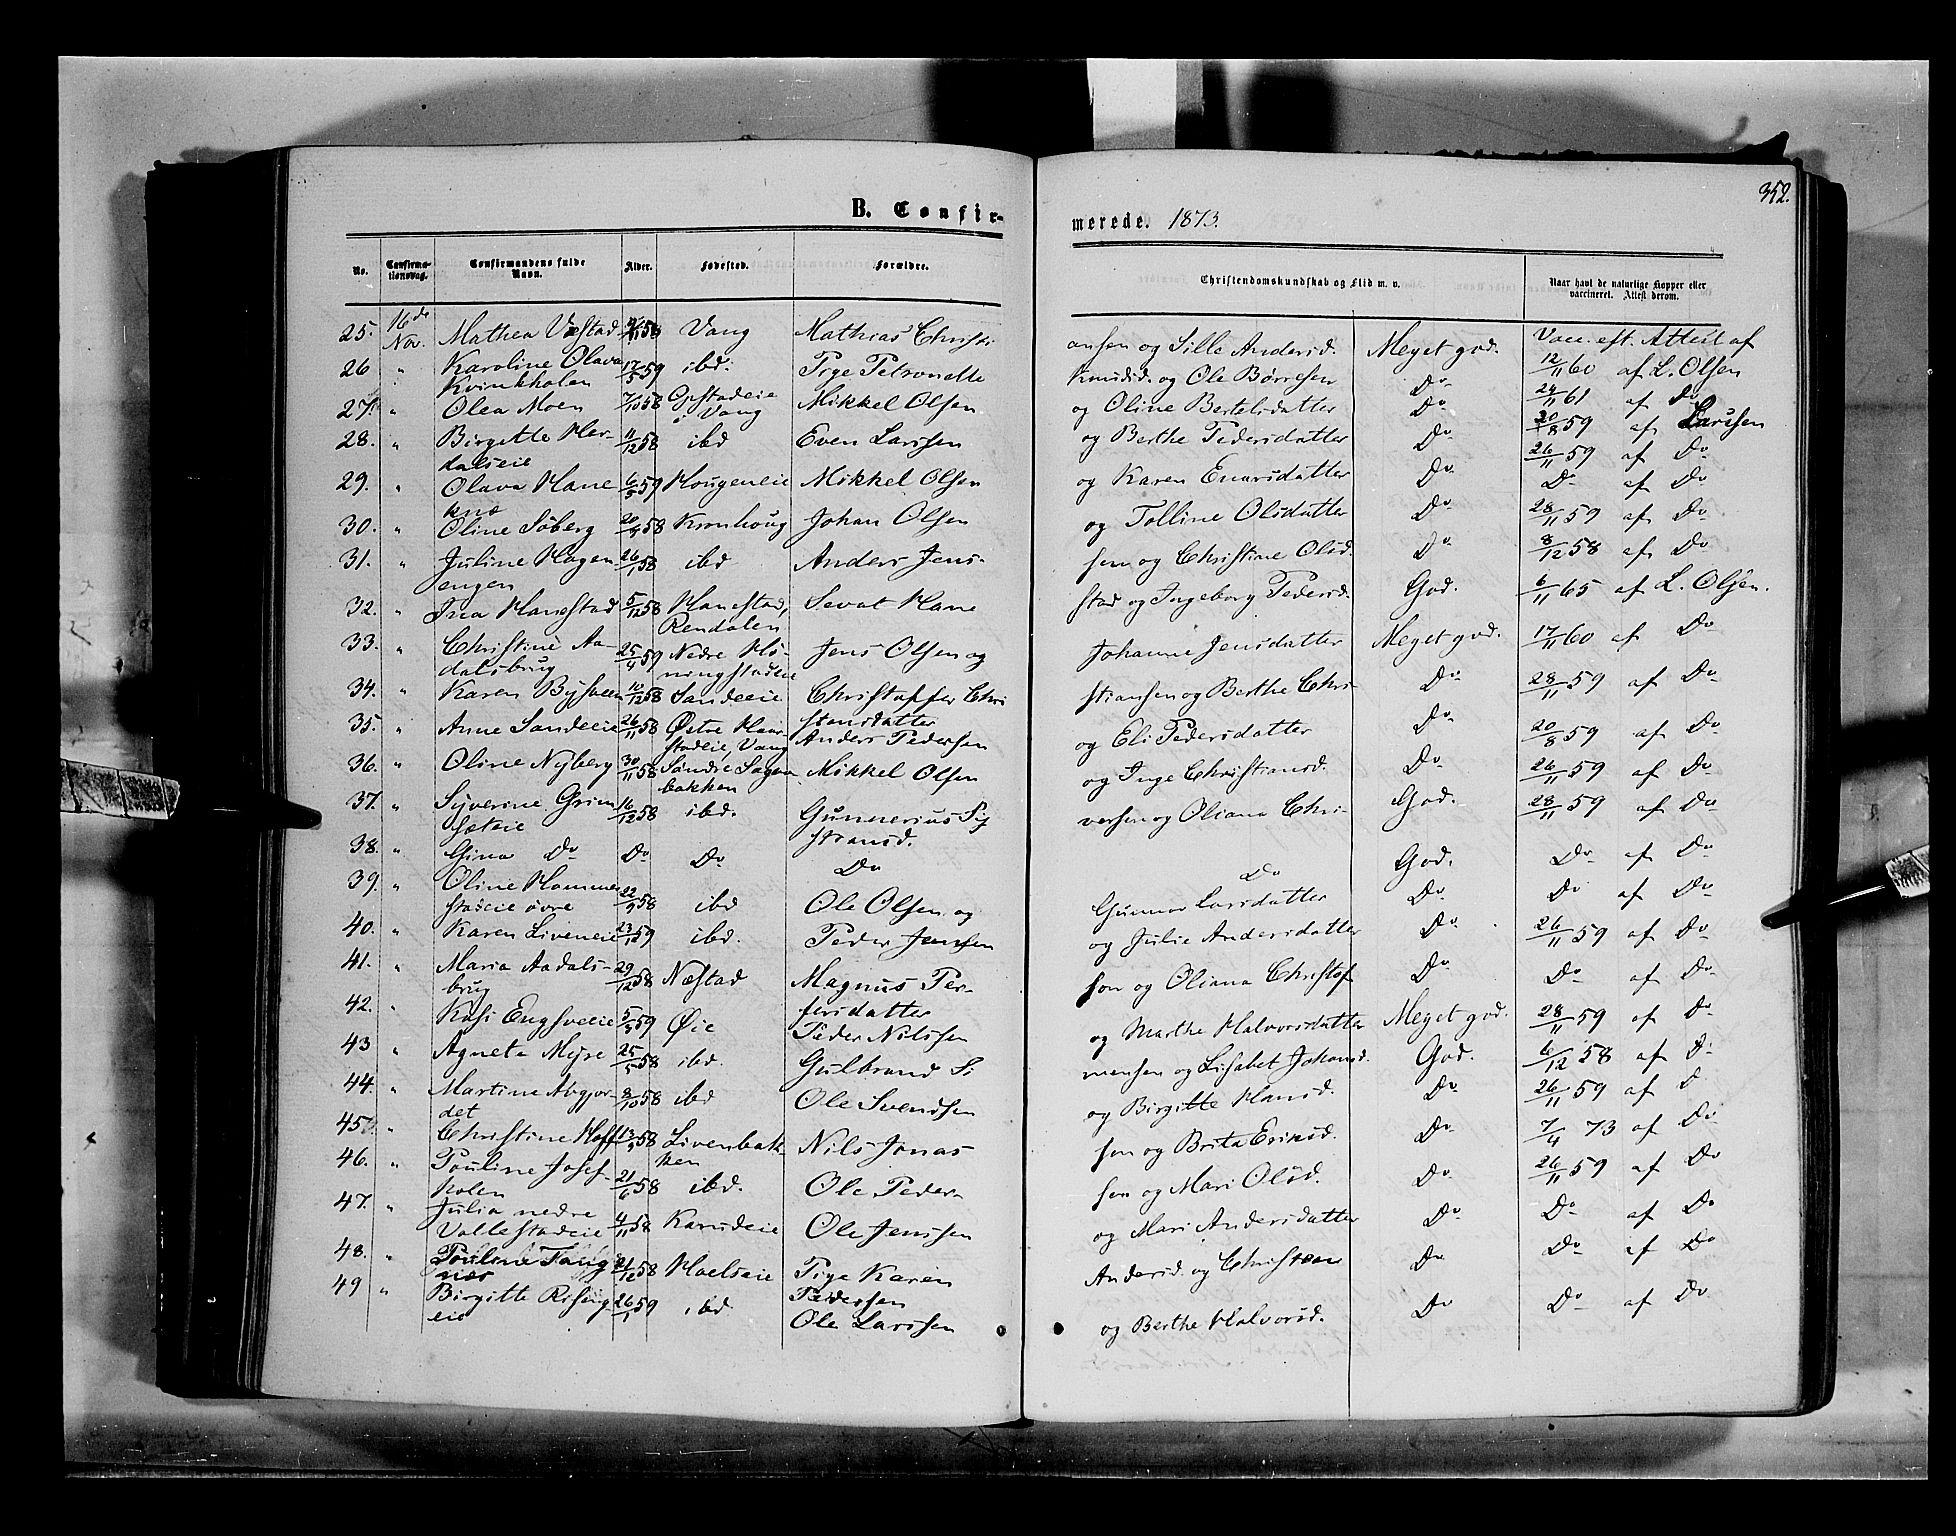 352.
B. Confir-
merede. 1873.
No. Confirma-tionsdag. Confirmandens fulde Navn. Alder. Fødested. Forældre. Christendomskundskab og Flid m. v. Naar havt de naturlige Kopper eller vaccineret. Attest derom.
25. 16de Nov. Mathea Væstad 58 Vang Mathias Christi ansen og Sille Andersd. Meget god. Vacc. eft. Attest af
26 " Karoline Olava Kvinkholen 17/5 59 ibd. Pige Petronelle Knudsd. og Ole Børresen Do 12/11 60 af L. Olsen
27. " Olea Moen 7/10 58 Opstadeie i Vang Mikkel Olsen og Oline Bertelsdatter Do 24/11 61 af Do
28. " Birgitte Mer-dalseie 11/12 58 ibd Even Larssen og Berthe Pedersdatter Do 20/8 59 af Larssen
29. " Olava Hane knæ 6/5 59 Hougeneie Mikkel Olsen og Karen Evarsdatter Do 26/11 59 af Do
30. " Oline Søberg 20/9 58 Kronhoug Johan Olsen og Tolline Olsdatter Do Do af Do
31. " Juline Hagen-engen 26/1 58 ibd Anders Jens-sen og Christine Olsd. Do 28/11 59 af Do
32. " Inea Hanestad 5/12 58 Hanestad, Rendalen Sevat Hane stad og Ingeborg Pedersd. God. 8/12 58 af Do
33. " Christine Aa-dalsbrug 25/4 59 Nedre Hø-ningstadeie Jens Olsen og Johanne Jensdatter Meget god. 6/11 65 af L. Olsen.
34. " Karen Bysveen 10/12 58 Sandeeie Christoffer Chri stiansen og Berthe Chri-stansdatter Do 17/11 60 af Do
35. " Anne Sandeeie 26/11 58 Østre Haar-stadeie, Vang Anders Pedersen og Eli Pedersdatter Do 28/11 59 af Do
36. " Oline Nyberg 30/11 58 Søndre Sagen-bakken Mikkel Olsen og Inge Christiansd. Do 20/8 59 af Do
37. " Syverine Grim-sæteie 16/12 58 ibd. Gunnerius Sy versen og Oliana Chri-stiansd. God. 26/11 59 af Do
28/11 59 af Do
38. " Gina Do Do Do Do Do God. Do af Do
39. " Oline Hommer stadeie øvre 22/9 58 ibd Ole Olsen og Gunnor Larsdatter Do Do af Do
40. " Karen Liveneie 23/12 59 ibd. Peder Jensen og Julie Andersdatter Do 26/11 59 af Do
41. " Maria Aadals-brug 29/12 58 Næstad Magnus Per-son og Oliana Christof fersdatter Do Do af Do
42. " Kasi Engsveeie 5/3 59 Øie Peder Nilssen og Marthe Halvorsdatter Meget god. 28/11 59 af Do
43 " Agneta Myre 25/5 58 ibd. Gulbrand Si mensen og Lisabet Johansd. God. 6/12 58 af Do
44. " Martine Nygjor-det 8/10 58 ibd Ole Svendsen og Birgitte Hansd. Do 26/11 59 af D
45. " Christine Hoff 13/9 58 Livenbak-ken Nils Jonas sen og Brita Eriksd. Do 7/4 73 af Do
46. " Pouline Josef-kolen 21/6 58 ibd. Ole Peder-sen og Mari Olsd. Do 26/11 59 af Do
47. " Julia nedre Vollestadeie 4/11 58 Karudeie Ole Jenssen og Mari Andersdatter Do Do af Do
48. " Pouline Faug næs 21/12 58 Hoelseie Pige Karen Andersd. og Christian Pedersen Do Do af Do
49 " Birgitte Riseng eie 26/1 59 ibd Ole Larssen og Berthe Halvorsd. Do Do af Do